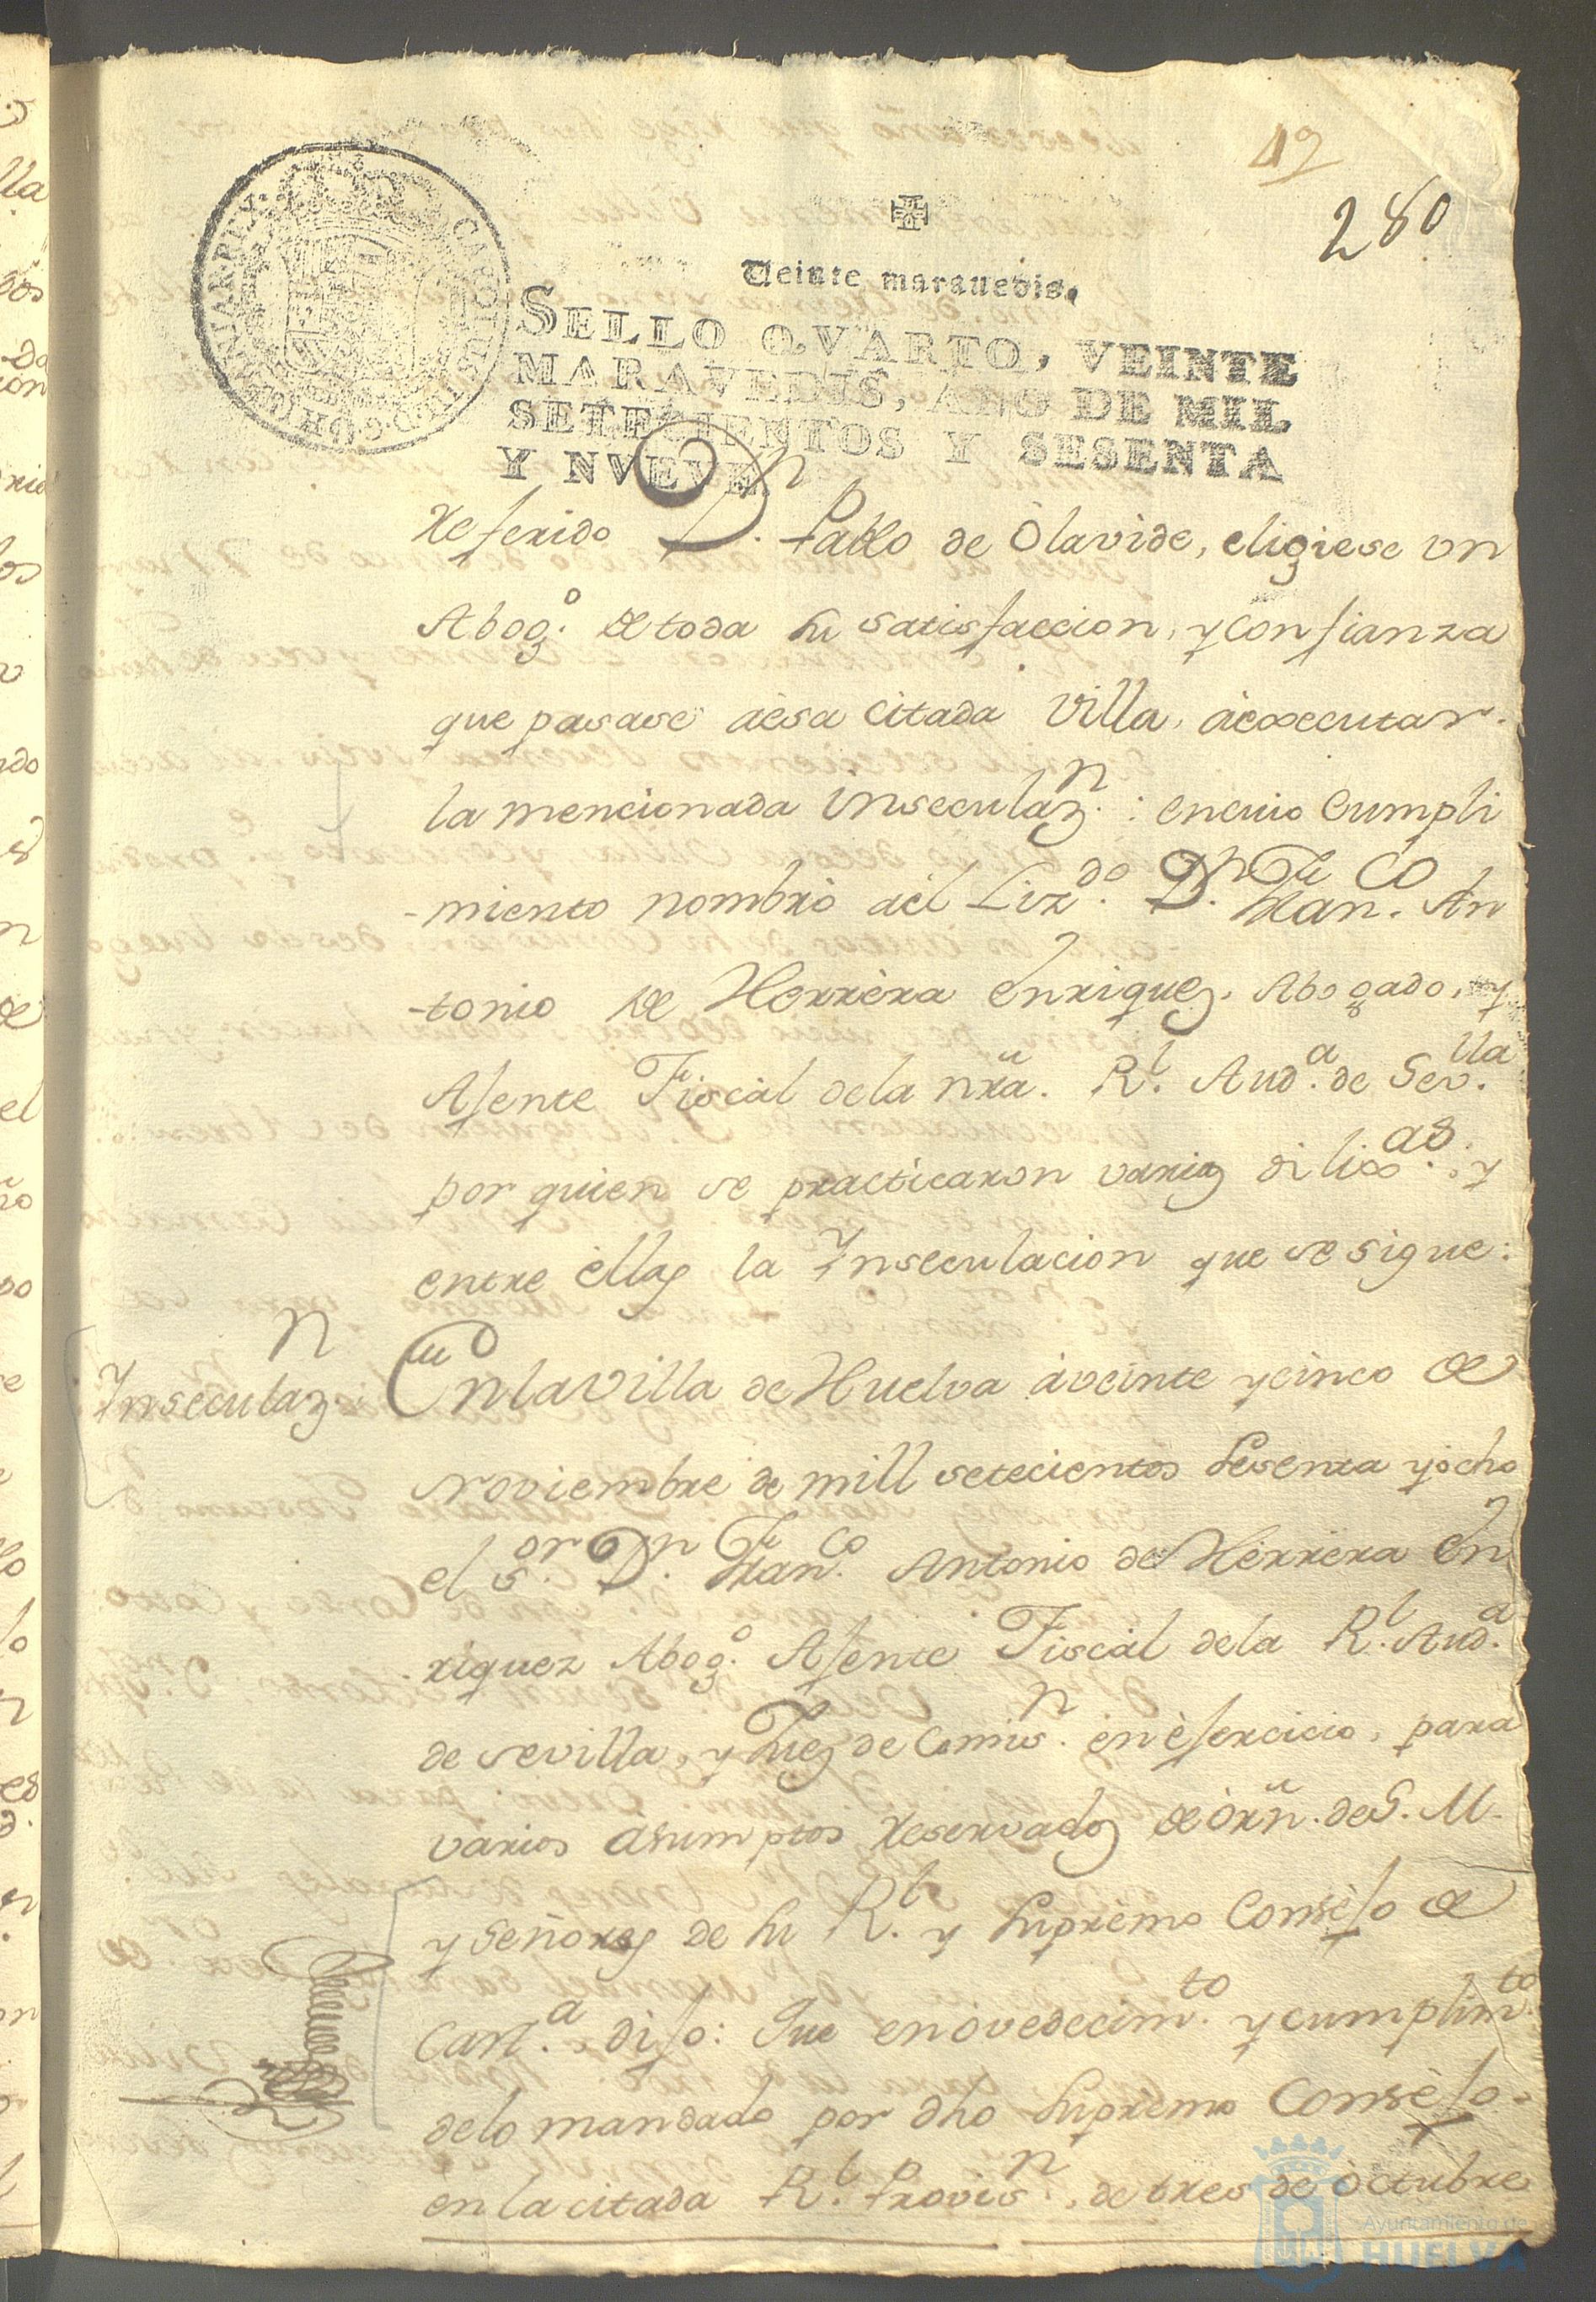 42
280
Veinte marauedis.
SELLO QVARTO, VEINTE
MARAVEDIS, AÑO DE MIL
SETECIENTOS Y SESENTA
Y NVEVE.
referido D.n Pablo de Olavide, eligiese vn
Abog.o de toda su satisfaccion, y confianza
que pasase àesa citada Villa, àexecutar
la mencionada inseculaz.n : encuio cumpli
-miento nombrò aèl Liz.do D.n Fran.co An
-tonio de Herrèra Enriquez, Abogado, y
Ajente Fiscàl dela nrã. R.l Aud.a de Sev.lla
por quien se practicaron varias dilix.as y
entre èllas la Ynseculacion que se sigue:
Ynseculaz.n
Enla Villa de Huelva àveinte ycinco de
noviembre de mill setecientos sesenta yocho
el s.or D.n Fran.co Antonio de Hèrrèra En
riquez Abog.o Ajente Fiscàl dela R.l Aud.a
de sevilla, y Juez de Comis.n en èjercicio, para
varios asumptos reservados de òrñ. de S. M.
y señores de su R.l y suprèmo Consèjo de
Cast.a dijo: Que enovedecim.to ycumplim.to
delo mandado por dho suprèmo Consèjo
enla citada R.l Provis.n, de tres de òctubre
Ayuntamiento de
HUELVA